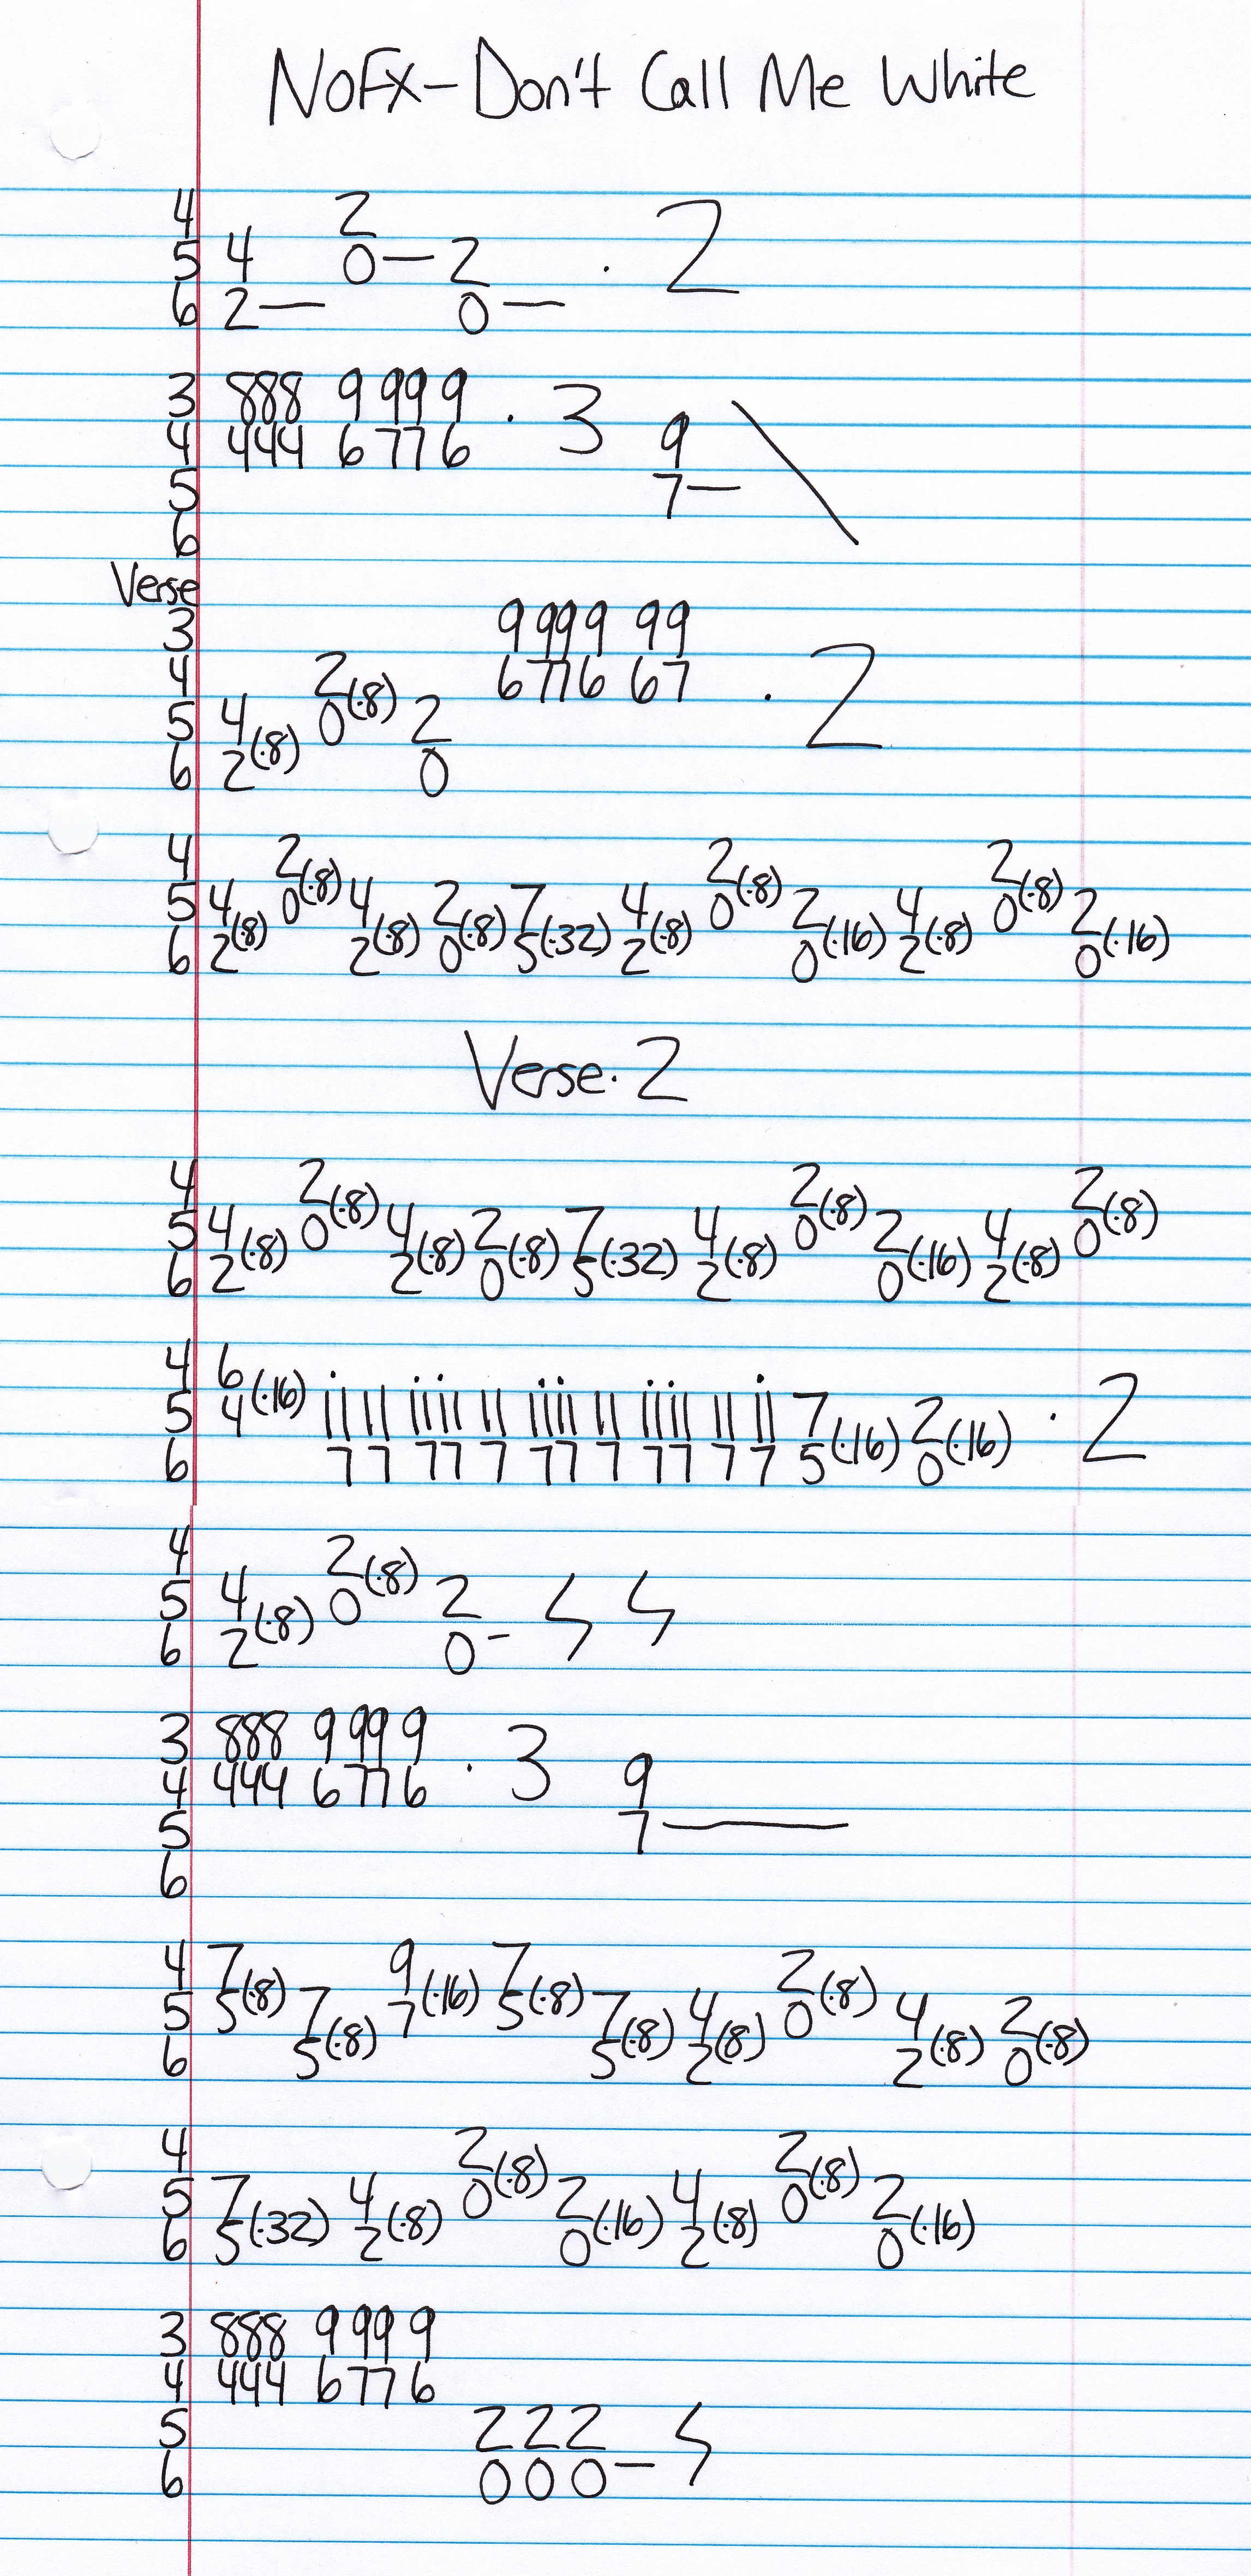 NOFX - Don't Call Me White
4 2
5 4 0 — 2 · 2
6 2 — 0 —
3 888 9 999 9 · 3
4 444 6 776 9 \
5 7 —
6
Verse
3 9 999 99
4 2 6 776 67 · 2
5 4 (·8) 0 (·8) 2
6 2 0
4 2 2 2
5 4 (·8) 0 (·8) 4 (·8) 2 (·8) 7 (·32) 4 (·8) 0 (·8) 2 (·16) 4 (·8) 0 (·8) 2 (·16)
6 2 2 0 5 2 0 2 0
Verse · 2
4 2 2 2
5 4 (·8) 0 (·8) 4 (·8) 2 (·8) 7 (·32) 4 (·8) 0 (·8) 2 (·16) 4 (·8) 0 (·8)
6 2 2 0 5 2 0 2
4 6
5 4 (·16) 7 (·16) 2 (·16) · 2
6 7 7 77 7 77 7 77 7 7 5 0
4 2
5 4 (·8) 0 (·8) 2
6 2 0 -
3 888 9 999 9 · 3
4 444 6 776 9
5 7 —
6
4 7 9 7 2
5 5 (·8) 7 (·8) 7 (·16) 5 (·8) 7 (·8) 4 (·8) 0 (·8) 4 (·8) 2 (·8)
6 5 5 2 2 0
4 2 2
5 7 (·32) 4 (·8) 0 (·8) 2 (·16) 4 (·8) 0 (·8) 2 (·16)
6 5 2 0 2 0
3 888 9 999 9
4 444 6 776
5 2 2 2
6 0 0 0 —